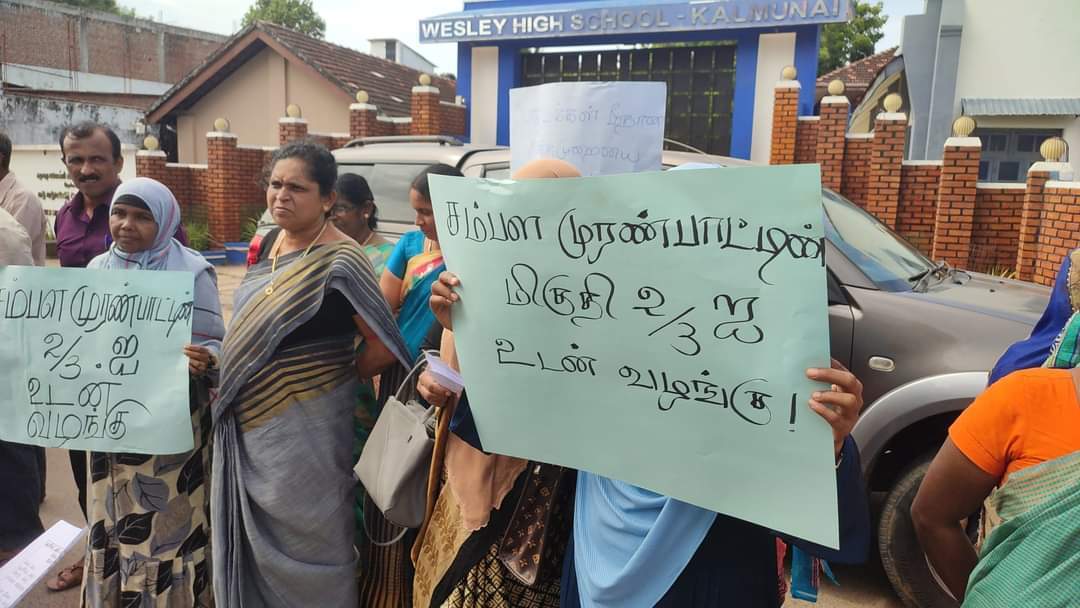 WESLEY HIGH SCHOOL - KALMUNAI
சம்பள முரண்பாட்டின்
மிகுதி 2/3 ஐ
உடன் வழங்கு!
சம்பள முரண்பாட்டின்
2/3 .ஐ
உடன்
வழங்கு